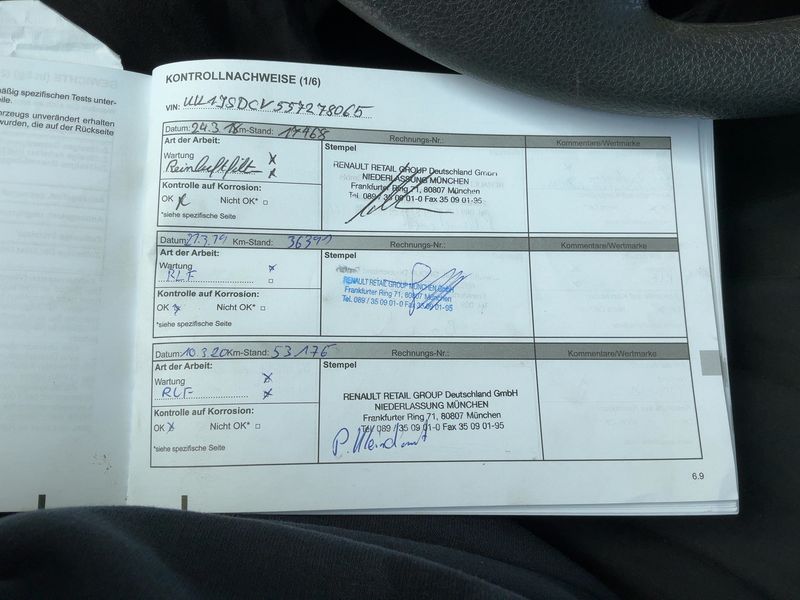 mäßig spezifischen Tests unter-
KONTROLLNACHWEISE (1/6)
VIN: UU17SDCV557278065
Datum: 24.3.18 Km-Stand: 17468 Rechnungs-Nr.: Kommentare/Wertmarke
Art der Arbeit: Stempel
Wartung x
Reinluftfilt x
RENAULT RETAIL GROUP Deutschland GmbH
NIEDERLASSUNG MÜNCHEN
Frankfurter Ring 71, 80807 München
Tel. 089 / 35 09 01-0 Fax 35 09 01-95
Kontrolle auf Korrosion:
OK x Nicht OK* □
*siehe spezifische Seite
Datum: 21.3.19 Km-Stand: 36391 Rechnungs-Nr.: Kommentare/Wertmarke
Art der Arbeit: Stempel
Wartung x
RLF □
RENAULT RETAIL GROUP MÜNCHEN GmbH
Frankfurter Ring 71, 80807 München
Tel. 089 / 35 09 01-0 Fax 35 09 01-95
Kontrolle auf Korrosion:
OK x Nicht OK* □
*siehe spezifische Seite
Datum: 10.3.20 Km-Stand: 53176 Rechnungs-Nr.: Kommentare/Wertmarke
Art der Arbeit: Stempel
Wartung x
RLF x
RENAULT RETAIL GROUP Deutschland GmbH
NIEDERLASSUNG MÜNCHEN
Frankfurter Ring 71, 80807 München
Tel. 089 / 35 09 01-0 Fax 35 09 01-95
Kontrolle auf Korrosion:
OK x Nicht OK* □
*siehe spezifische Seite
6.9